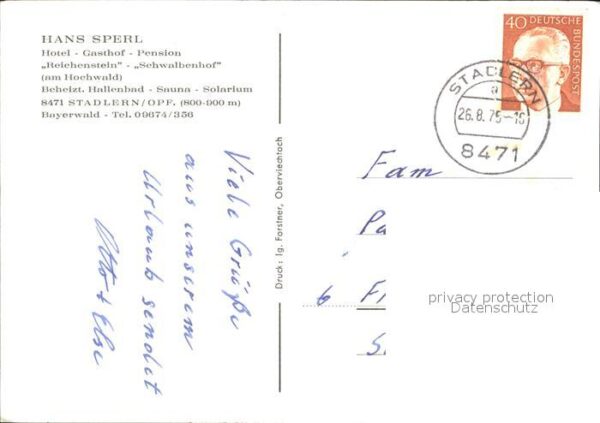 HANS SPERL
Hotel - Gasthof - Pension
„Reichenstein" - „Schwalbenhof"
(am Hochwald)
Beheizt. Hallenbad - Sauna - Solarium
8471 STADLERN/OPF. (800-900 m)
Bayerwald - Tel. 09674/356
Viele Grüße
aus unserem
Urlaub sendet
Otto + Else
Druck: Ig. Forstner, Oberviechtach
40 DEUTSCHE BUNDESPOST
STADLERN
a
26.8.75-16
8471
Fam
Pa
6 Fr
S
privacy protection
Datenschutz